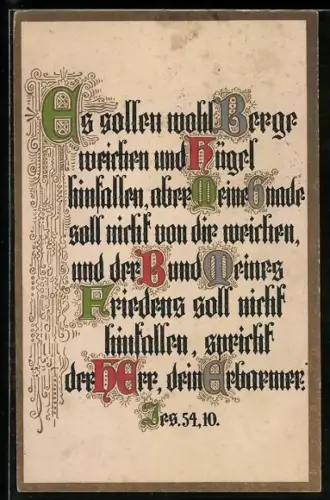 Es sollen wohl Berge
weichen und Hügel
hinfallen, aber Meine Gnade
soll nicht von dir weichen,
und der Bund Meines
Friedens soll nicht
hinfallen, spricht
der HErr, dein Erbarmer.
Jes. 54, 10.